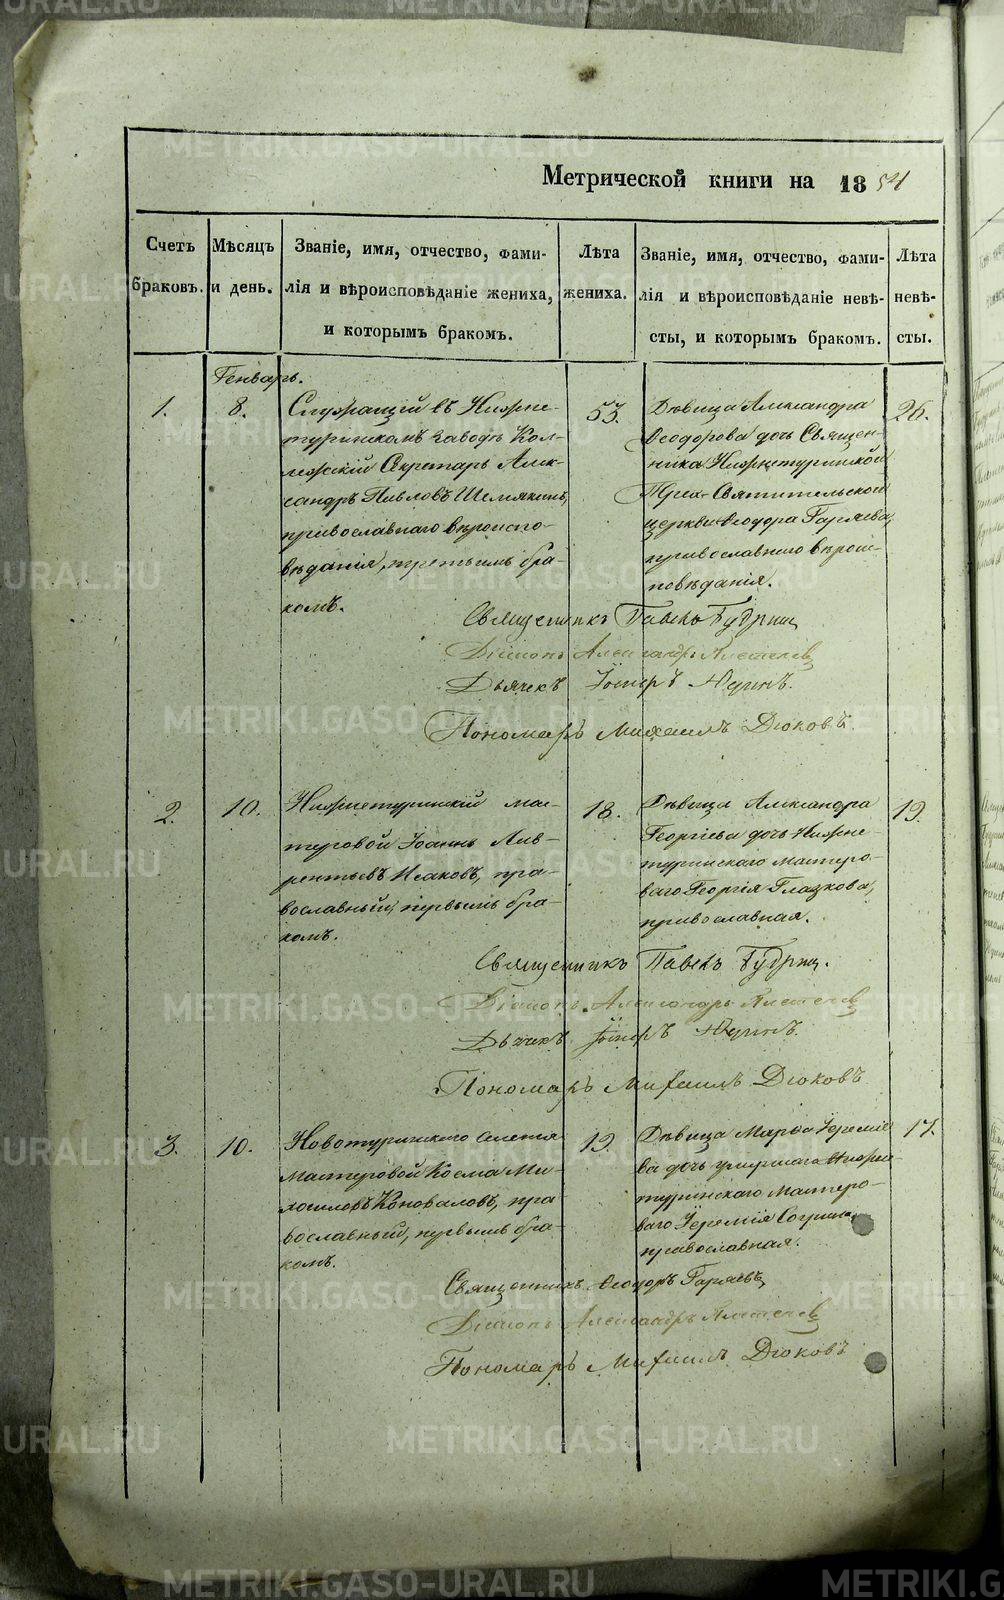 Метрической книги на 1854
Счетъ браковъ.
Мѣсяцъ и день.
Званіе, имя, отчество, фами-
лія и вѣроисповѣданіе жениха,
и которымъ бракомъ.
Лѣта
жениха.
Званіе, имя, отчество, фами-
лія и вѣроисповѣданіе невѣ-
сты, и которымъ бракомъ.
Лѣта
невѣ-
сты.
Генварь.
1.
8.
Служащій въ Нижне-
туринскомъ заводѣ Кол-
лежскій Секретарь Алек-
сандръ Павловъ Шемякинъ,
православнаго вѣроиспо-
вѣданія, третьимъ бра-
комъ.
53.
Дѣвица Александра
Ѳеодорова дочь Священ-
ника Нижнетуринской
Трех-Святительской
церкви Ѳеодора Гаряева,
православнаго вѣроис-
повѣданія.
26.
Священникъ Павелъ Будрин
Діаконъ Александръ
Дьячекъ Іосифъ Юдинъ.
Пономарь Михаилъ Дюковъ.
2.
10.
Нижнетуринскій мас-
теровой Іоаннъ Лав-
рентьевъ Исаковъ, пра-
вославный, первымъ бра-
комъ.
18.
Дѣвица Александра
Георгіева дочь Нижне-
туринскаго мастеро-
ваго Георгія Глазкова,
православная.
19.
Священникъ Павелъ Будрин.
Діаконъ Александръ
Дьячекъ Іосифъ Юдинъ.
Пономарь Михаилъ Дюковъ
3.
10.
Новотуринскаго селенія
мастеровой Косма Ми-
хаиловъ Коноваловъ, пра-
вославный, первымъ бра-
комъ.
19.
Дѣвица Марѳа Іереміе-
ва дочь умершаго Нижне-
туринскаго мастеро-
ваго Іереміи
православная.
17.
Священникъ Ѳеодоръ Гаряевъ
Діаконъ Александръ
Пономарь Михаилъ Дюковъ
METRIKI.GASO-URAL.RU